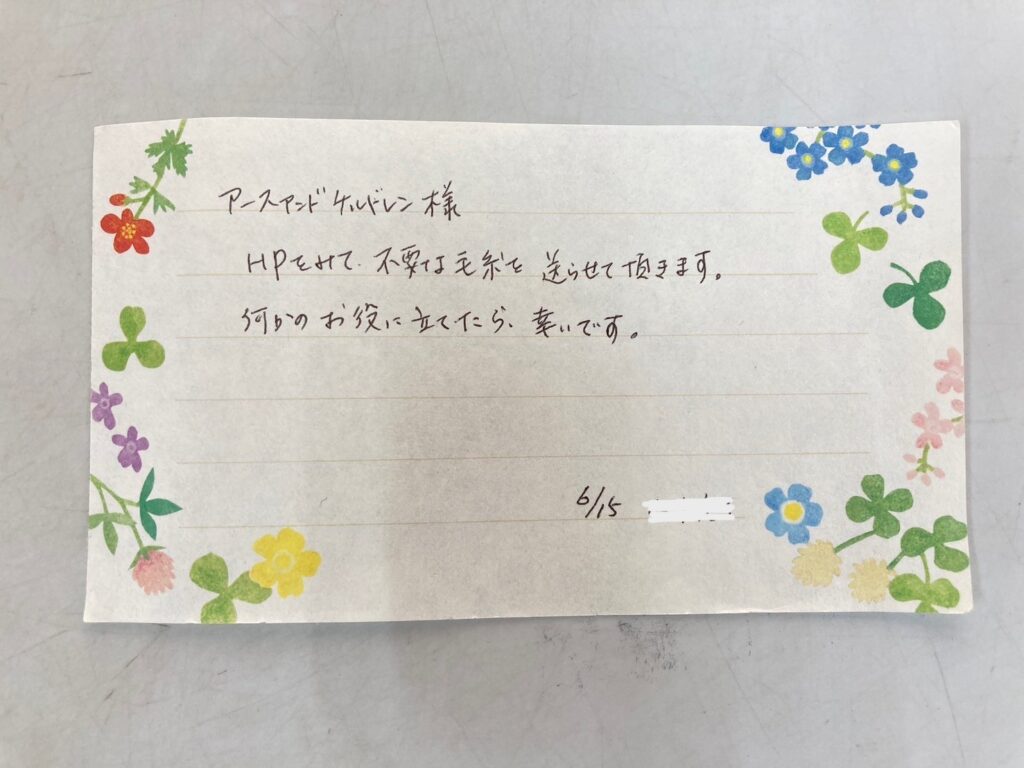 アースアンドチルドレン様
HPをみて、不要な毛糸を送らせて頂きます。
何かのお役に立てたら、幸いです。
6/15